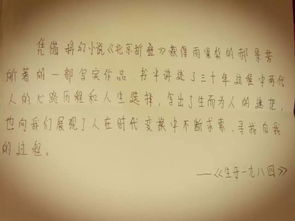 凭借科幻小说《北京折叠》获得雨果奖的郝景芳
所著的一部写实作品。书中讲述了三十年这程中两代
人的心路历程和人生选择，写出了生而为人的迷茫，
也向我们展现了人在时代变换中不断求索、寻找自我
的过程。
——《生于一九八四》